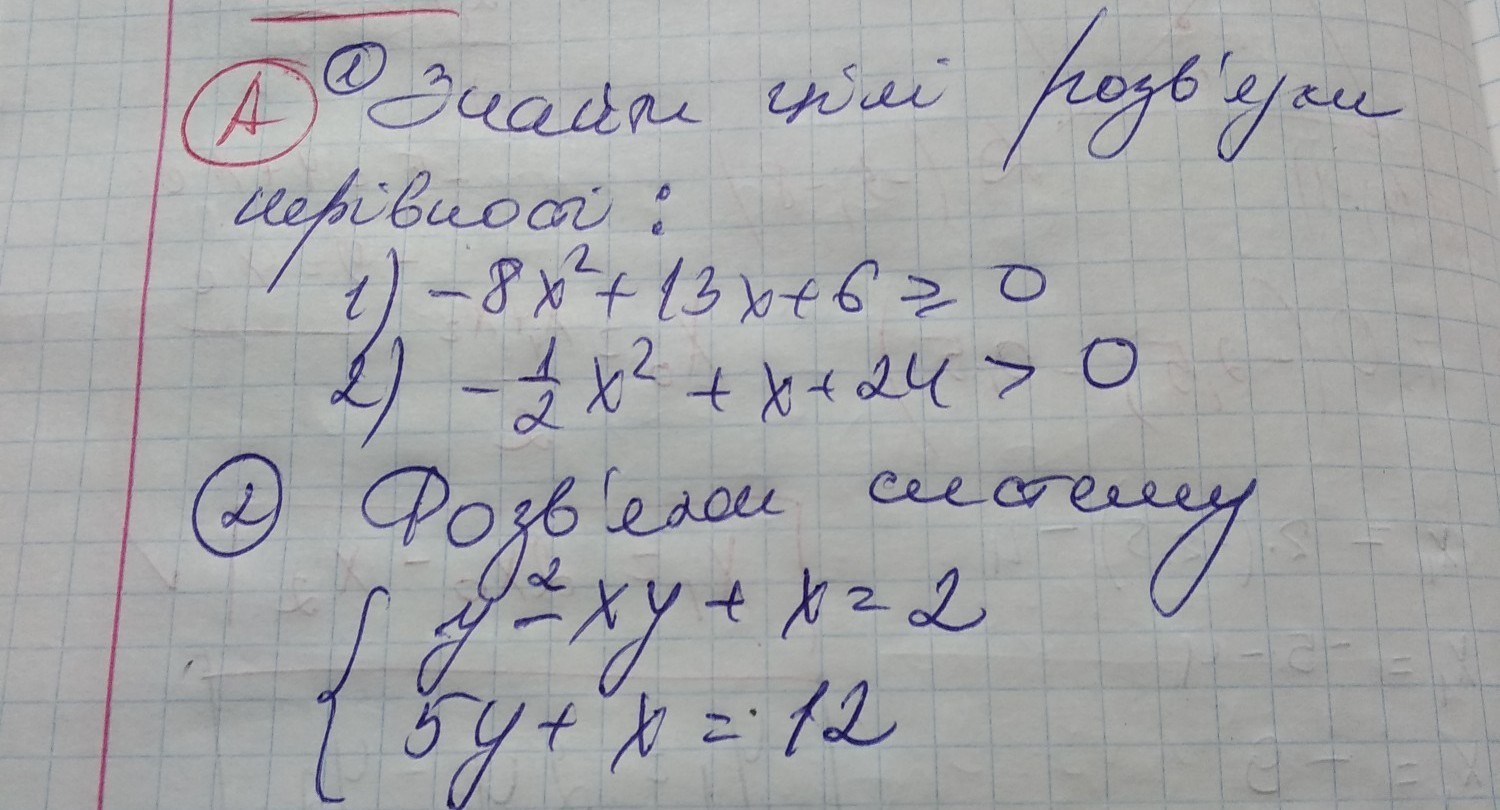 А ① Знайти цілі розв'язки
нерівності:
1) -8x² + 13x + 6 ≥ 0
2) -1/2 x² + x + 24 > 0
② Розв'язати систему
{ y² - xy + x = 2
5y + x = 12